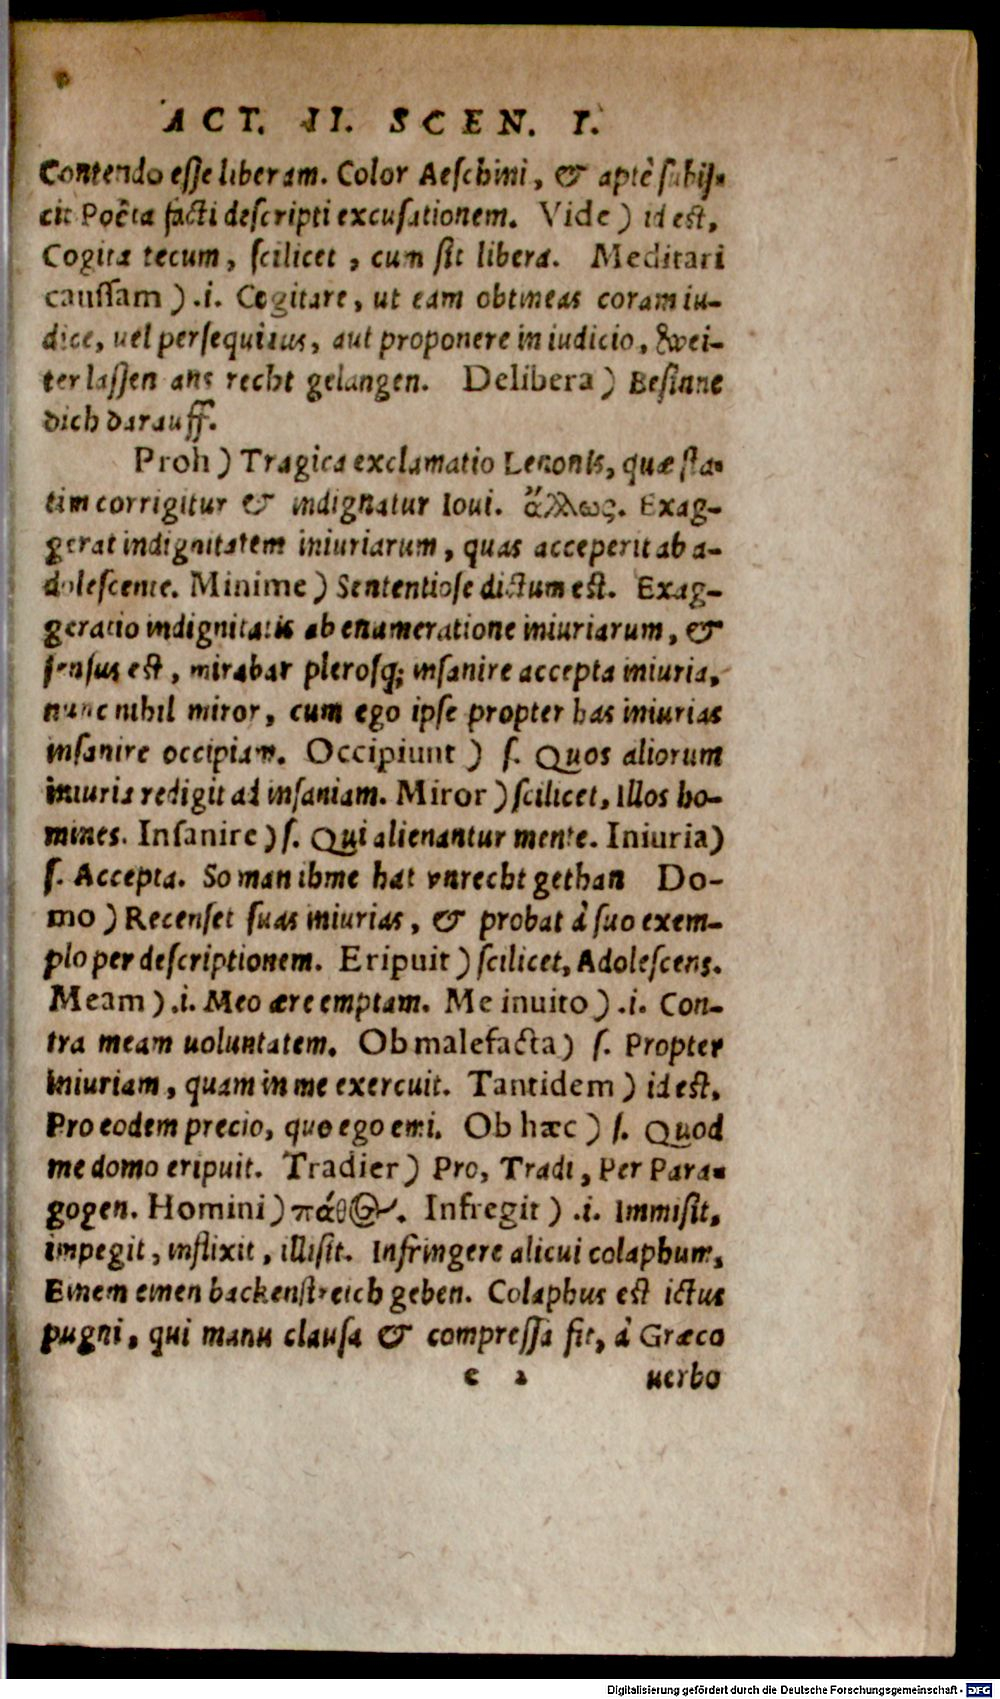 ACT. II. SCEN. I.
Contendo esse liberam. Color Aeschini, & aptè subij-
cit Poêta facti descripti excusationem. Vide) id est,
Cogita tecum, scilicet, cum sit libera. Meditari
caussam) .i. Cogitare, ut eam obtineas coram iu-
dice, uel persequitius, aut proponere in iudicio, wei-
ter lassen ans recht gelangen. Delibera) Besinne
dich darauff.
Proh) Tragica exclamatio Lenonis, quæ sta-
tim corrigitur & indignatur Ioui. ἄλλως. Exag-
gerat indignitatem iniuriarum, quas acceperit ab a-
dolescente. Minime) Sententiose dictum est. Exag-
geratio indignitatis ab enumeratione iniuriarum, &
sensus est, mirabar plerosq; insanire accepta iniuria,
nunc nihil miror, cum ego ipse propter has iniurias
insanire occipiam. Occipiunt) s. Quos aliorum
iniuria redigit ad insaniam. Miror) scilicet, Illos ho-
mines. Insanire) s. Qui alienantur mente. Iniuria)
s. Accepta. So man ihme hat vnrecht gethan Do-
mo) Recenset suas iniurias, & probat à suo exem-
plo per descriptionem. Eripuit) scilicet, Adolescens.
Meam) .i. Meo ære emptam. Me inuito) .i. Con-
tra meam uoluntatem. Ob malefacta) s. Propter
iniuriam, quam in me exercuit. Tantidem) id est,
Pro eodem precio, quo ego emi. Ob hæc) s. Quod
me domo eripuit. Tradier) Pro, Tradi, Per Para-
gogen. Homini) πάθος. Infregit) .i. Immisit,
impegit, inflixit, illisit. Infringere alicui colaphum,
Einem einen backenstreich geben. Colaphus est ictus
pugni, qui manu clausa & compressa fit, à Græco
e 2 uerbo
Digitalisierung gefördert durch die Deutsche Forschungsgemeinschaft - DFG